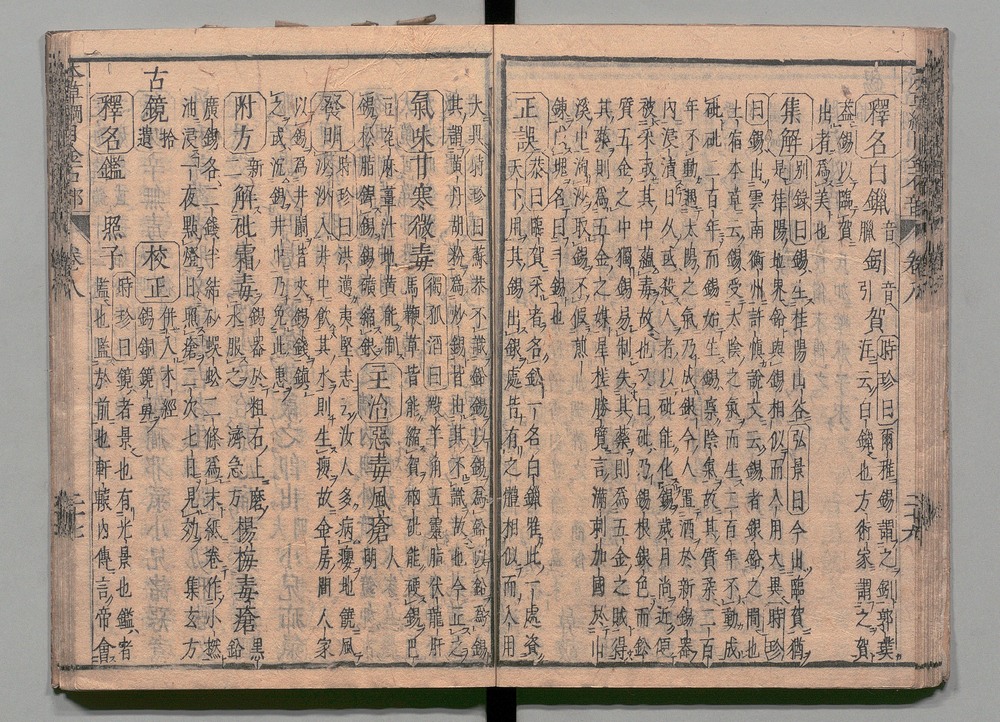 釋名白鑞音臘鈏音引賀時珍曰爾雅錫謂之鈏郭璞
註云白鑞也方術家謂之賀
蓋錫以臨賀
出者爲美也
集解別録曰錫生桂陽山谷弘景曰今出臨賀猶
是桂陽地界鉛與錫相似而入用大異時珍
曰錫出雲南衡州許愼說文云錫者銀鉛之間也
土宿本草云錫受太陰之氣而生二百年不動成
砒砒二百年而錫始生錫稟陰氣故其質柔二百
年不動遇太陽之氣乃成銀今人置酒於新錫器
內浸漬日久或殺人者以砒能化錫歲月尚近便
被采取其中蘊毒故也又曰砒乃錫根銀色而鉛
質五金之中獨錫易制失其藥則爲五金之賊得
其藥則爲五金之媒星槎勝覽言滿剌加國於山
溪中淘沙取錫不假煎
鍊成塊名曰斗錫也
正誤恭曰臨賀采者名鉛一名白鑞惟此一處資
天下用其錫出銀處皆有之體相似而入用
大異時珍曰蘇恭不識鉛錫以錫爲鉛以鉛爲錫
其謂黃丹胡粉爲炒錫皆由其不識故也今正之
氣味甘寒微毒獨孤滔曰羖羊角五靈脂伏龍肝
馬鞭草皆能縮賀硇砒能硬錫巴
豆蓖麻薑汁地黃能制
錫松脂鎔錫錫礦縮銀主治惡毒風瘡大明
發明時珍曰洪邁夷堅志云汝人多病癭地饒風
沙沙入井中飲其水則生癭故金房間人家
以錫爲井闌皆夾錫錢鎮
之或沉錫井中乃免此患
附方新二解砒霜毒錫器於粗石上磨水服之濟急方楊梅毒瘡黑鉛
廣錫各二錢半結砂蜈蚣二條爲末紙卷作小撚
油浸一夜點燈日照瘡二次七日見效集玄方
古鏡拾遺校正併入本經錫銅鏡鼻
釋名鑑照子時珍曰鏡者景也有光景也鑑者
監也監於前也軒轅內傳言帝會